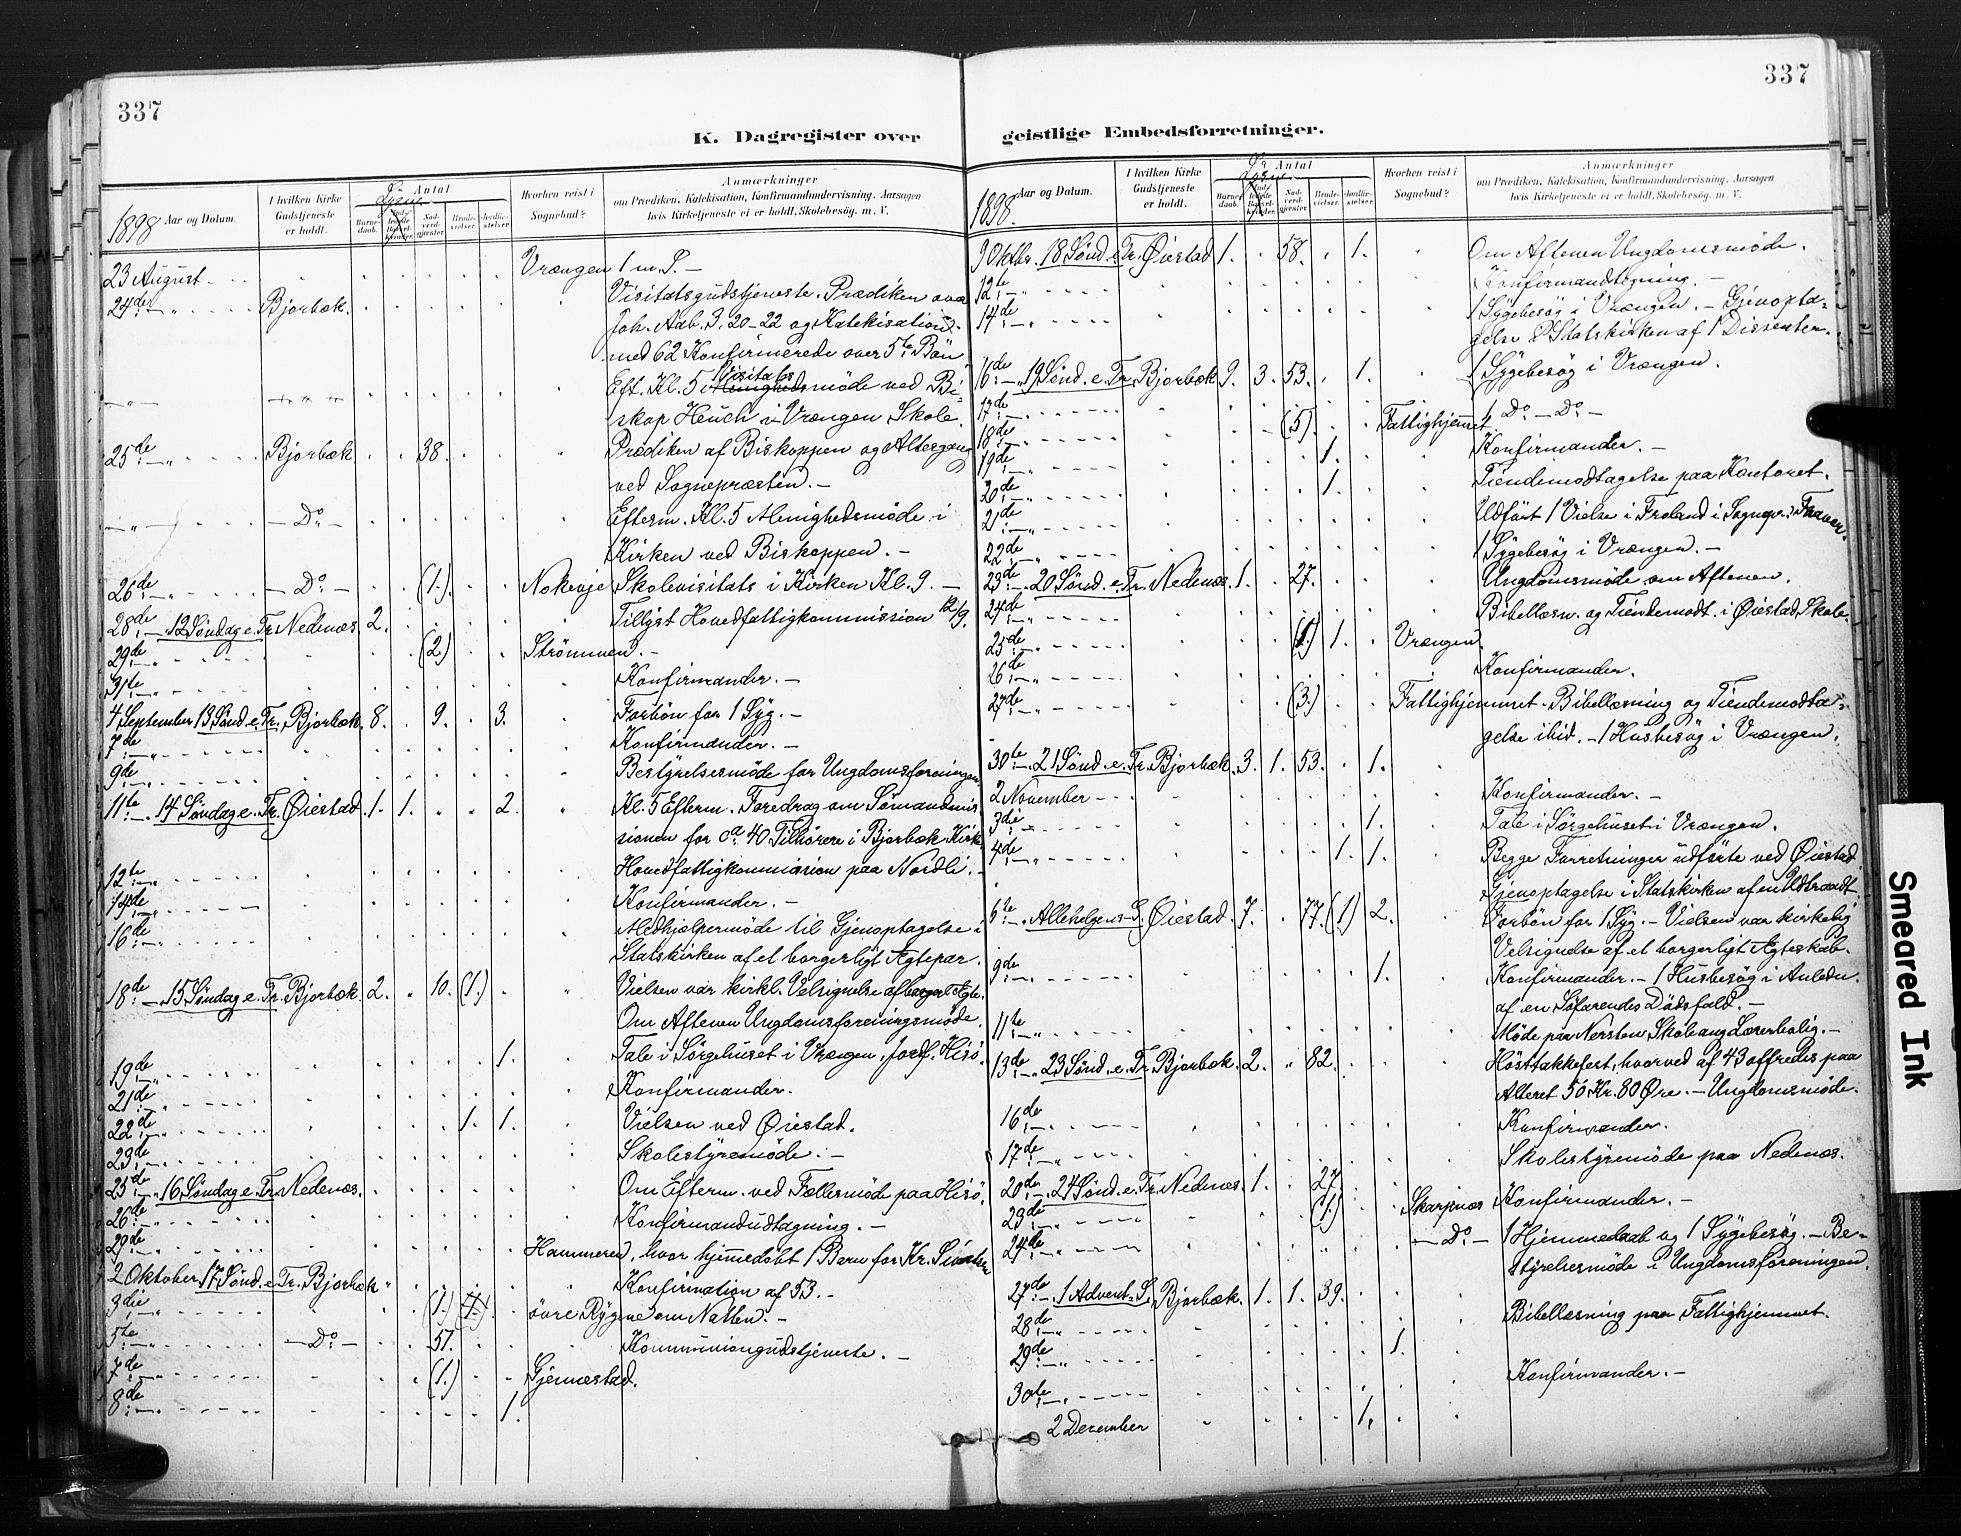 337
K. Dagregister over
1898 Aar og Datum. I hvilken Kirke Gudstjeneste er holdt. Antal Barnedaab. Nadverdgjæster. Brudevielser. Jordfæstelser. Hvorhen reist i Sognebud? Anmærkninger om Prædiken, Katekisation, Konfirmandundervisning, Aarsagen hvis Kirketjeneste ei er holdt, Skolebesøg. m. V.
23 August Vrængen 1 m. S. –
24de Bjorbæk. Visitatsgudstjeneste. Prædiken ova
Joh. Aab. 3. 20–22 og Katekisation.
med 62 Konfirmerede over 5te Bön
Eft. Kl. 5 Visitatsmöde ved Bi-
skop Heuch i Vrængen Skole.
25de Bjorbæk. 38. Prædiken af Biskoppen og Altergang
ved Sognepræsten. –
– Do – Efterm. Kl. 5 Menighedsmöde i
Kirken ved Biskoppen. –
26de – Do – (1.) Nokevje Skolevisitats i Kirken Kl. 9. –
28de 12 Söndag e. Tr. Nedenæs. 2. Tillyst Hovedfattigkommission 12/9.
29de (2.) Strömmen. –
31te Konfirmander. –
4 September 13 Sönd. e. Tr. Bjorbæk. 8. 9. 3. Forbön for 1 Syg. –
7de Konfirmander. –
9de Bestyrelsesmöde for Ungdomsforeningen
11te 14 Söndag e. Tr. Øiestad. 1. 1. 2. Kl. 5 Efterm. Foredrag om Sömandsmis
sionen for ca 40 Tilhörere i Bjorbæk Kirke
12te Hovedfattigkommission paa Nordli. –
14de Konfirmander. –
16de Medhjælpermöde til Gjenoptagelse i
Statskirken af et borgerligt Ægtepar.
18de 15 Söndag e. Tr. Bjorbæk. 2. 10. (1.) Vielsen var kirkl. Velsignelse af borgerl. Ægte.
Om Aftenen Ungdomsforeningsmöde.
19de 1. Tale i Sörgehuset i Vrængen, Jordf. Hisö.
21de Konfirmander.
22de 1. 1. Vielsen ved Øiestad.
23de Skolestyremöde. –
25de 16 Söndag e. Tr. Nedenæs. Om Efterm. ved Fællesmöde paa Hisö.
26de Konfirmandudtagning. –
29de Hammeren, hvor hjemmedöbt 1 Barn for Kr. Sivertsen
2 Oktober 17 Sönd. e. Tr. Bjorbæk Konfirmation af 53. –
3die (1.) (1.) övre Rygene om Natten. –
5te – Do – 57. Kommuniongudstjeneste. –
7de (1.) Gjennestad.
8de 1.
337
geistlige Embedsforretninger.
1898. Aar og Datum. I hvilken Kirke Gudstjeneste er holdt. Antal Barnedaab. Nadverdgjæster. Brudevielser. Jordfæstelser. Hvorhen reist i Sognebud? Anmærkninger om Prædiken, Katekisation, Konfirmandundervisning, Aarsagen hvis Kirketjeneste ei er holdt, Skolebesøg. m. V.
9 Oktbr. 18 Sönd. e. Tr. Øiestad 1. 58. 1. Om Aftenen Ungdomsmöde.
12te Konfirmandtegning. –
14de 1 Sygebesög i Vrængen. – Gjenopta-
gelse i Statskirken af 1 Dissenter.
16de 19 Sönd. e. Tr. Bjorbæk 9. 3. 53. 1. 1 Sygebesög i Vrængen.
17de 1 Do – Do –
18de (5) Fattighjemmet.
19de 1. Konfirmander. –
20de 1. Tiendemodtagelse paa Kontoret.
21de Udfört 1 Vielse i Froland i Sognepr.s Fravær.
22de 1 Sygebesög i Vrængen. –
23de 20 Sönd. e. Tr. Nedenæs. 1. 27. Ungdomsmöde om Aftenen.
24de Bibellæsn. og Tiendemodt. i Øiestad Skole.
25de (1.) 1. Vrængen.
26de Konfirmander.
27de (3.) Fattighjemmet. Bibellæsning og Tiendemodta-
gelse ibid. – 1 Husbesög i Vrængen.
30te 21 Sönd. e. Tr. Bjorbæk. 3. 1. 53. 1.
2 November Konfirmander. –
3die 1. Tale i Sörgehuset i Vrængen.
4de 1. 1. Begge Forretninger udförte ved Øiestad
Gjenoptagelse i Statskirken af en Udtraadt
6te Allehelgens S. Øiestad. 7. 77. (1.) 2. Forbön for 1 Syg. – Vielsen var kirkelig
Velsignelse af et borgerligt Ægteskab.
9de 1. Konfirmander. – 1 Husbesög i Anledn.
af en Söfarendes Dödsfald. –
11te Möde paa Nersten Skole ang. Lærerbolig. –
13de 23 Sönd. e. Tr. Bjorbæk. 2. 82. Hösttakkefest, hvorved af 43 offredes paa
Alteret 50 Kr. 80 Öre. – Ungdomsmöde.
16de Konfirmander.
17de Skolestyremöde paa Nedenæs.
20de 24 Sönd. e. Tr. Nedenæs. 1. 27.
23de (1.) Skarpnæs Konfirmander. –
24de – Do – 1 Hjemmedaab og 1 Sygebesög. – Be-
styrelsesmöde i Ungdomsforeningen.
27de 1 Advent. S. Bjorbæk. 1. 1. 39.
28de Bibellæsning paa Fattighjemmet.
29de 1.
30te Konfirmander. –
2 Dezember 1.
Smeared Ink